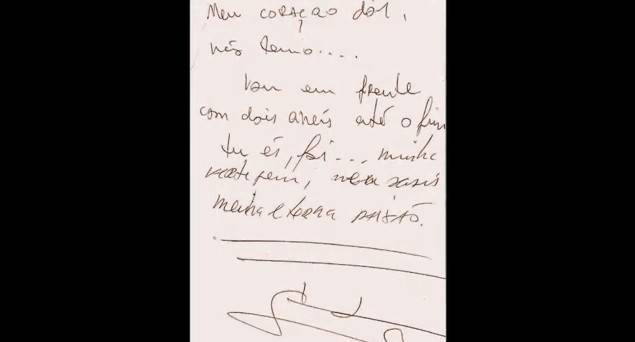 Meu coração dói,
não temo....
Vou em frente
com dois anéis até o fim
tu és, foi... minha
minha eterna paixão.